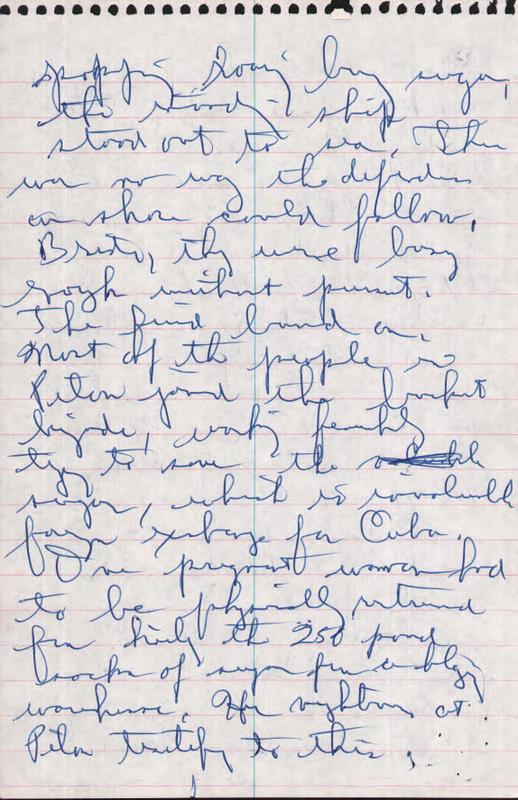 stood out to sea. There
was no way the defenders
on shore could follow.
Besides, they were busy
enough without pursuit.
The fire burned on.
Most of the people in
Pilon joined the bucket
brigade, working feverishly
trying to save the
sugar, which is invaluable
foreign exchange for Cuba.
One pregnant woman had
to be physically restrained
from hauling the 250 pound
sacks of sugar from a blazing
warehouse. Her neighbors at
Pilon testify to this.